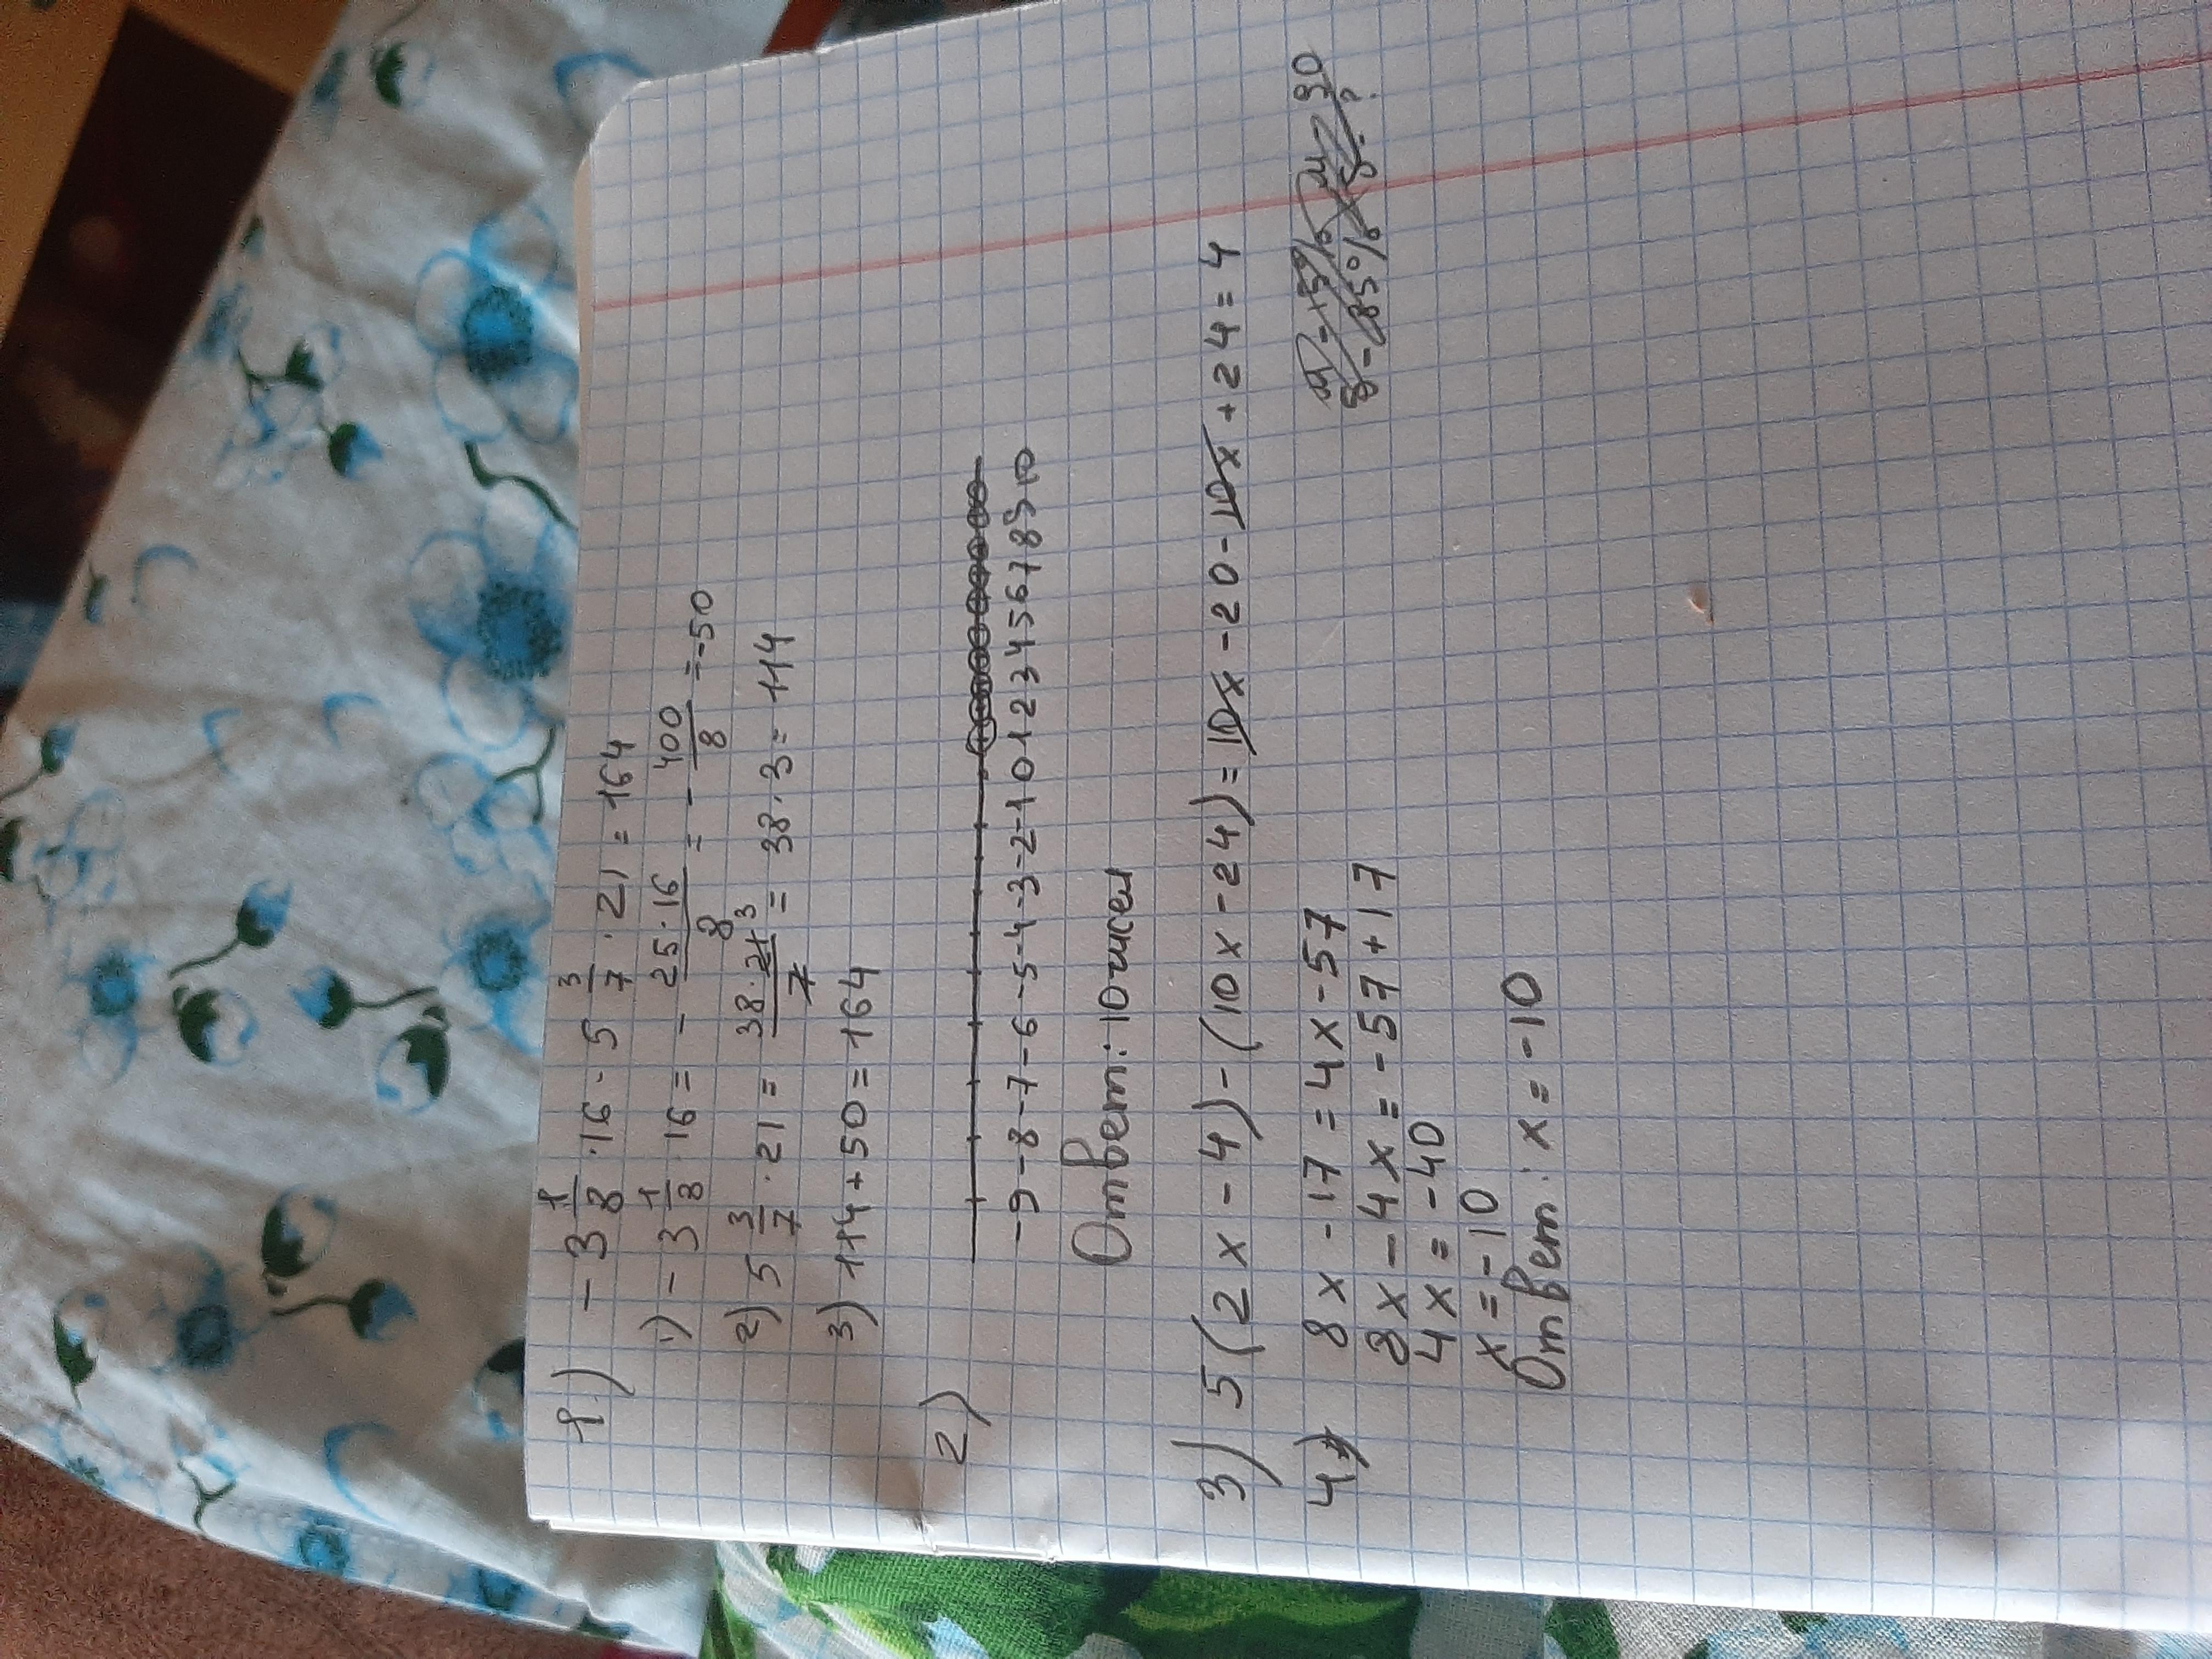 1.) - 3 1/8 · 16 - 5 3/7 · 21 = 164
1) - 3 1/8 · 16 = - 25·16/8 = - 400/8 = -50
2) 5 3/7 · 21 = 38·21 3/7 = 38·3 = 114
3) 114 + 50 = 164
2)
-9 -8 -7 -6 -5 -4 -3 -2 -1 0 1 2 3 4 5 6 7 8 9 10
Ответ: 10 чисел
3) 5(2x - 4) - (10x - 24) = 10x - 20 - 10x + 24 = 4
4) 8x - 17 = 4x - 57
8x - 4x = -57 + 17
4x = -40
x = -10
Ответ: x = -10